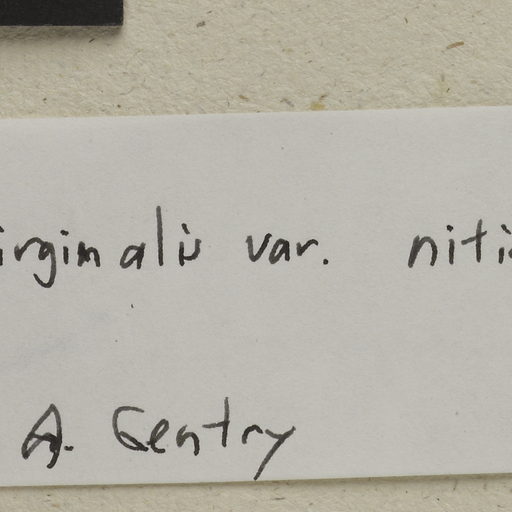 irginalis var. niti
A. Gentry